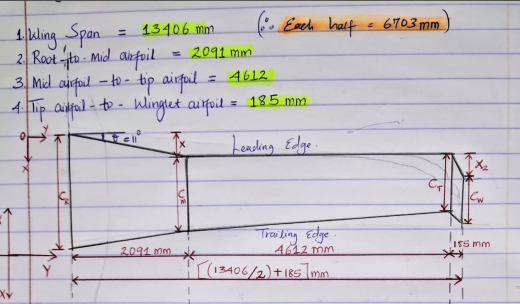 1. Wing Span = 13406 mm (∵ Each half = 6703 mm)
2. Root-to-mid airfoil = 2091 mm
3. Mid airfoil-to-tip airfoil = 4612
4. Tip airfoil-to-Winglet airfoil = 185 mm
O Y
θ = 11°
X
Leading Edge.
X
X₂
C_R
C_M
C_T
C_W
Trailing Edge.
2091 mm
4612 mm
185 mm
Y
[(13406/2)+185] mm